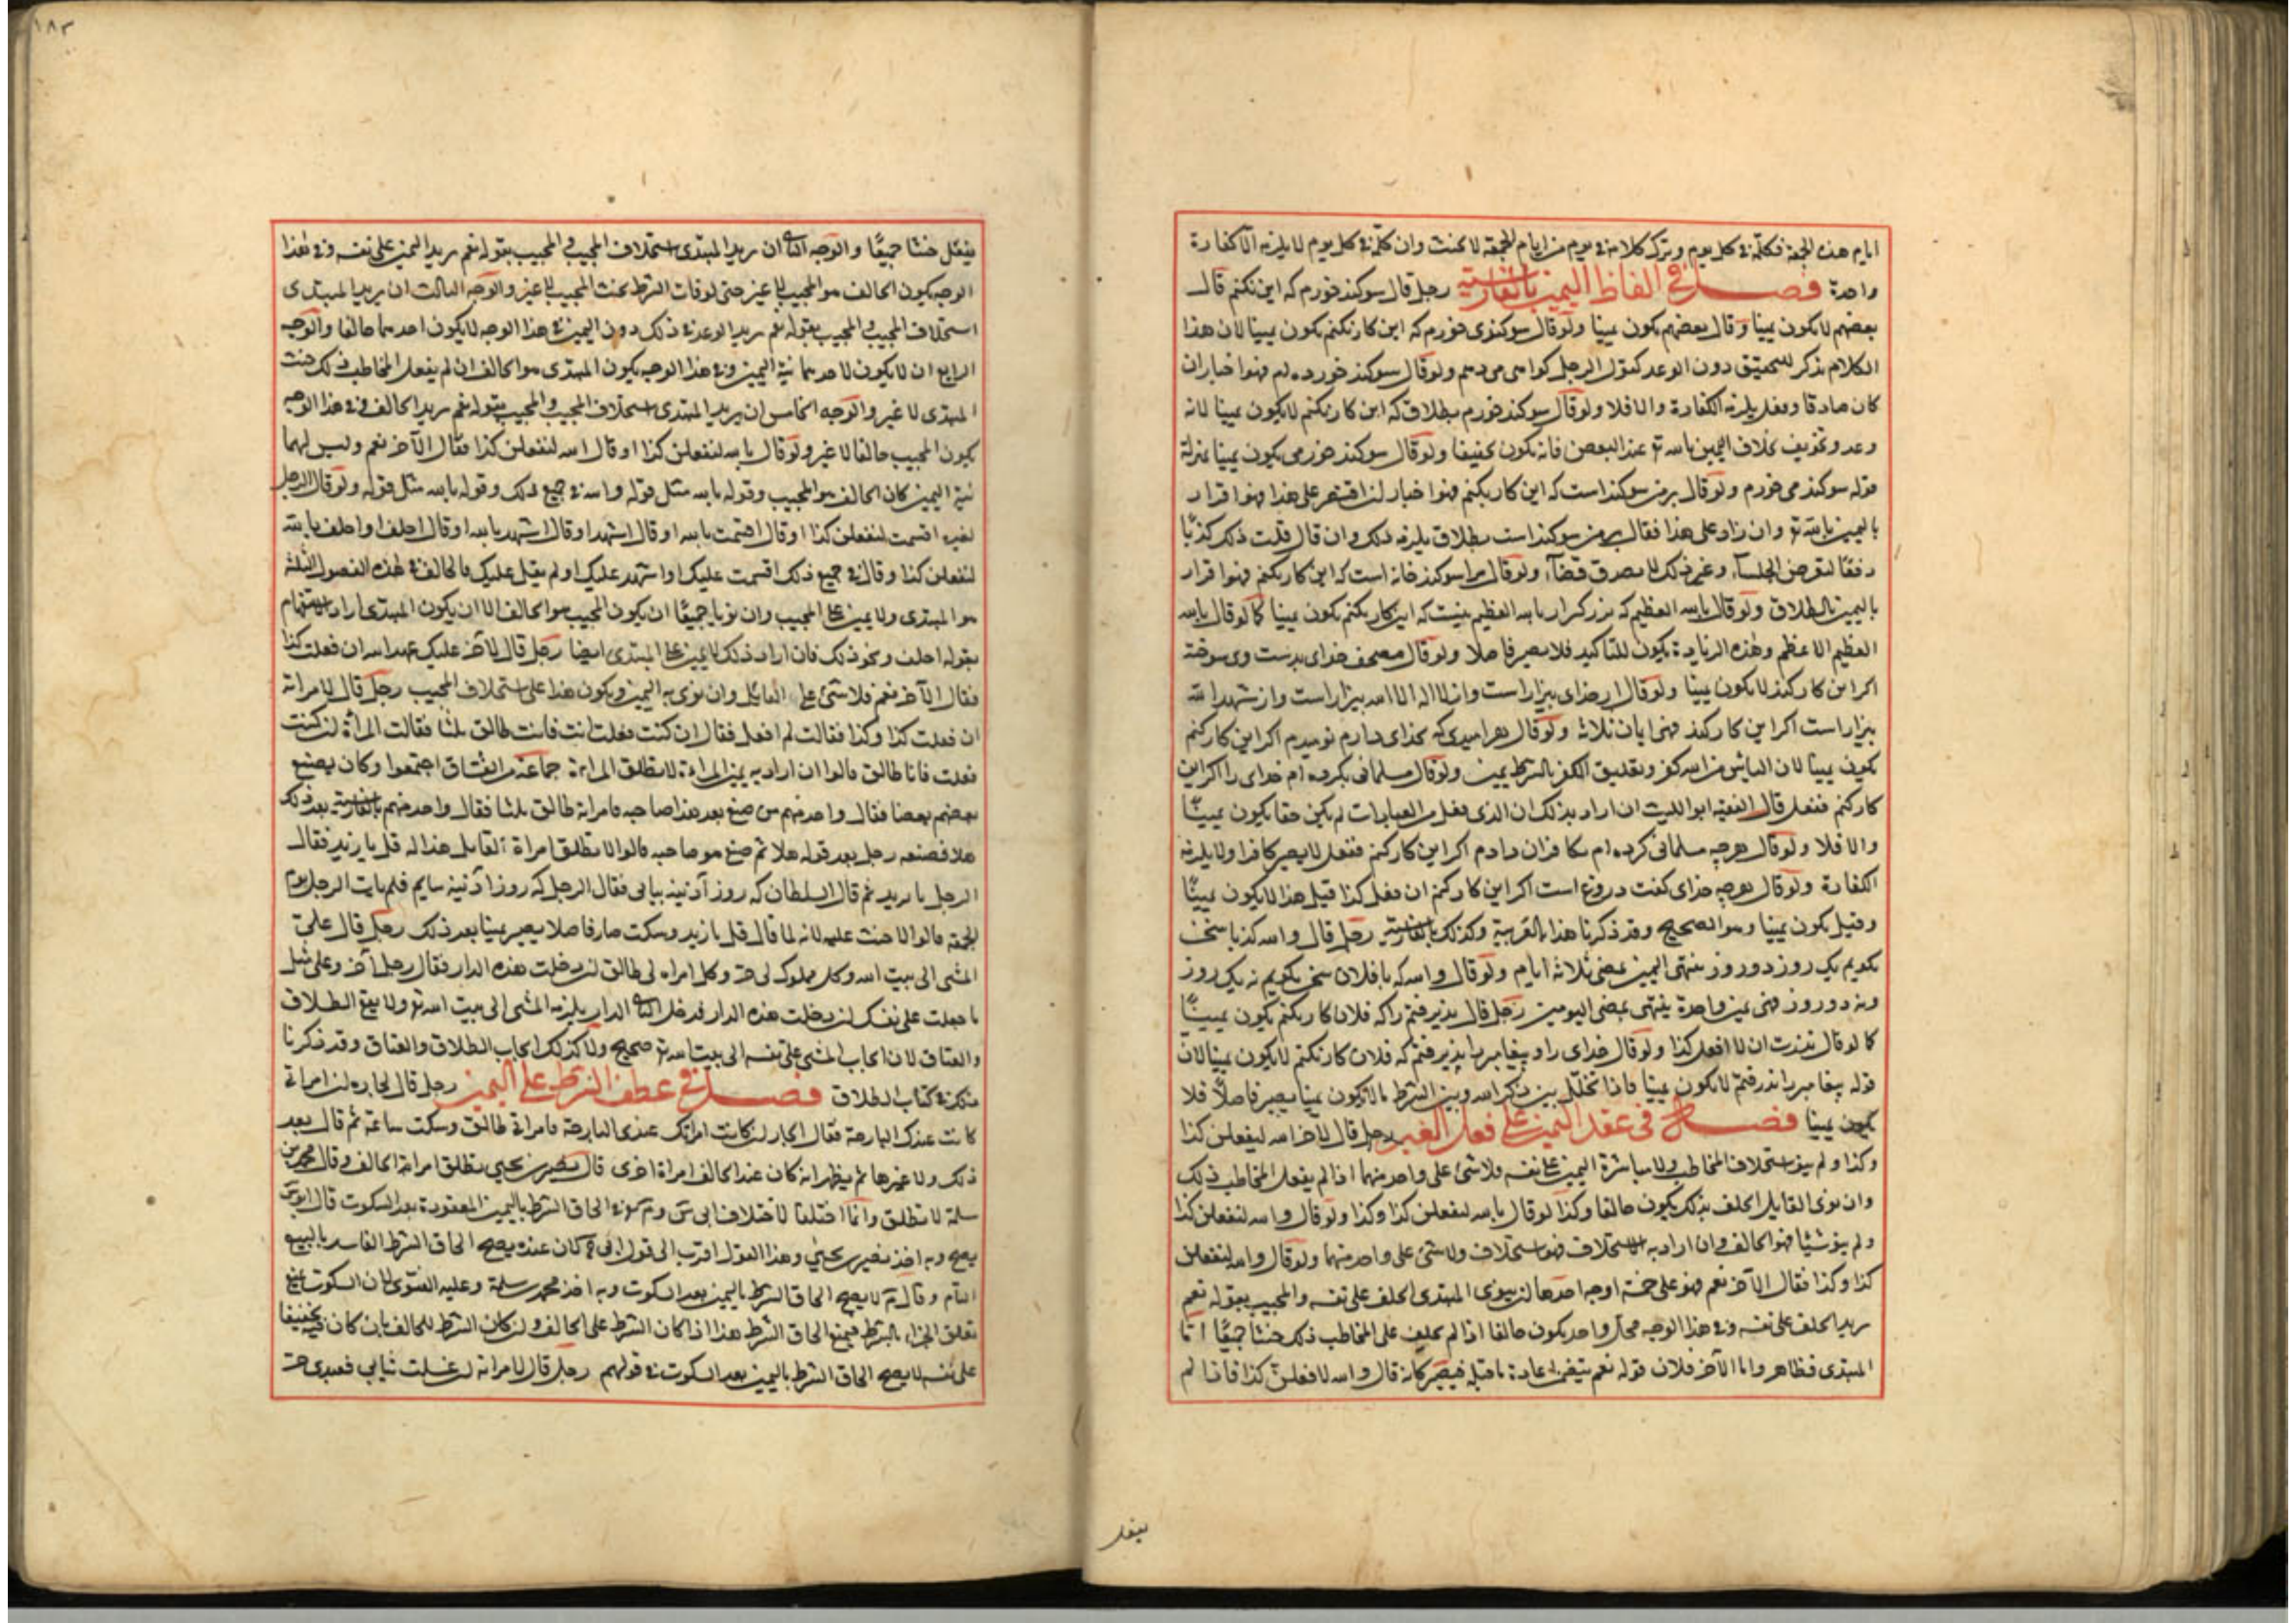 ايام هذه الجمعة فكلمه في كل يوم وترك كلامه في يوم من ايام الجمعة لا يحنث وان كلمه في كل يوم لا يلزمه الا كفارة
واحدة فصل في الفاظ اليمين بالفارسية رجل قال سوكند خورم كه اين نكنم قال
بعضهم لا يكون يمينا وقال بعضهم يكون يمينا ولو قال سوكندى خورم كه اين كار نكنم يكون يمينا لان هذا
الكلام يذكر للتحقيق دون الوعد كقول الرجل كواهى مى دهم ولو قال سوكند خورده ام فهو اخبار ان
كان صادقا وفعل يلزمه الكفارة والا فلا ولو قال سوكند خورم بطلاق كه اين كار نكنم لا يكون يمينا لانه
وعد وتخويف بخلاف اليمين بالله تع عند البعض فانه يكون تحقيقا ولو قال سوكند خورمى يكون يمينا بمنزلة
قوله سوكند مى خورم ولو قال بر من سوكند است كه اين كار نكنم فهو اخبار ان اقتصر على هذا فهو اقرار
باليمين بالله تع وان زاد على هذا فقال بر من سوكند است بطلاق يلزمه ذلك وان قال قلت ذلك كذبا
دفعا لتعرض الجلساء وغير ذلك لا يصدق قضاء ولو قال مرا سوكند خانه است كه اين كار نكنم فهو اقرار
باليمين بالطلاق ولو قال بالله العظيم كه بزركتر از بالله العظيم نيست كه اين كار نكنم يكون يمينا كما لو قال بالله
العظيم الاعظم وهذه الزيادة يكون للتاكيد فلا يصير فاصلا ولو قال مصحف خداى بدست وى سوخته
اكر اين كار كند لا يكون يمينا ولو قال از خداى بيزار است وان لا اله الا الله بيزار است واز شهد الله
بيزار است اكر اين كار كند فهى ايمان ثلاثة ولو قال هر اميدى كه بخداى دارم نوميدم اكر اين كار كنم
يكون يمينا لان الياس من الله كفر وتعليق الكفر بالشرط يمين ولو قال مسلمانى نكرده ام خداى را اكر اين
كار كنم ففعل قال الفقيه ابو الليث ان اراد بذلك ان الذى فعل من العبادات لم يكن حقا يكون يمينا
والا فلا ولو قال هر چه مسلمانى كرده ام بكافران دادم اكر اين كار كنم ففعل لا يصير كافرا ولا يلزمه
الكفارة ولو قال هر چه خداى كفت دروغ است اكر اين كار كنم ان فعل كذا قيل هذا لا يكون يمينا
وقيل يكون يمينا وهو الصحيح وقد ذكرنا هذا بالعربية وكذلك بالفارسية رجل قال والله كه با سخن
نكويم يك روز دو روز ينتهى اليمين بمضى ثلاثة ايام ولو قال والله كه با فلان سخن نكويم نه يك روز
ونه دو روز فهى يمين واحدة ينتهى بمضى اليومين رجل قال پذيرفتم را كه فلان كار نكنم يكون يمينا
كما لو قال نذرت ان لا افعل كذا ولو قال خداى را وپيغامبر را پذيرفتم كه فلان كار نكنم لا يكون يمينا لان
قوله پيغامبر را پذيرفتم لا يكون يمينا فاذا تخلل بين ذكر الله وبين الشرط ما لا يكون يمينا يصير فاصلا فلا
يكون يمينا فصل في عقد اليمين على فعل الغير رجل قال لآخر الله ليفعلن كذا
وكذا ولم ينو استحلاف المخاطب ولا مباشرة اليمين على نفسه فلا شئ على واحد منهما اذا لم يفعل المخاطب ذلك
وان نوى القايل الحلف بذلك يكون حالفا وكذا لو قال بالله لتفعلن كذا وكذا ولو قال والله لتفعلن كذا
ولم ينو شيئا فهو الحالف وان اراد به الاستحلاف فهو استحلاف ولا شئ على واحد منهما ولو قال والله لتفعلن
كذا وكذا فقال الآخر نعم فهو على خمسة اوجه احدها ان ينوى المبتدى الحلف على نفسه والمجيب بقوله نعم
يريد الحلف على نفسه وفي هذا الوجه كل واحد يكون حالفا اذا لم المخاطب ذلك حنثا جميعا اما
المبتدى فظاهر واما الآخر فلان قوله نعم يتضمن اعادة ما قبله فيصير كانه قال والله لافعلن كذا فاذا لم
يفعل
١٨٣
يفعل حنثا جميعا والوجه الثانى ان يريد المبتدى استحلاف المجيب والمجيب بقوله نعم يريد اليمين على نفسه وفي هذا
الوجه يكون الحالف هو المجيب لا غير حتى لو فات الشرط يحنث المجيب لا غير والوجه الثالث ان يريد المبتدى
استحلاف المجيب والمجيب بقوله نعم يريد الوعد في ذلك دون اليمين في هذا الوجه لا يكون احدهما حالفا والوجه
الرابع ان لا يكون لاحدهما نية اليمين وفي هذا الوجه يكون المبتدى هو الحالف ان لم يفعل المخاطب ذلك حنث
المبتدى لا غير والوجه الخامس ان يريد المبتدى استحلاف المجيب والمجيب بقوله نعم يريد الحالف وفي هذا الوجه
يكون المجيب حالفا لا غير ولو قال بالله لتفعلن كذا او قال الله لتفعلن كذا فقال الآخر نعم وليس لهما
نية اليمين كان الحالف هو المجيب وقوله بالله مثل قوله والله في جميع ذلك وقوله بالله مثل قوله ولو قال الرجل
لغيره اقسمت لتفعلن كذا او قال اقسمت بالله او قال اشهد او قال اشهد بالله او قال احلف او احلف بالله
لتفعلن كذا وقال في جميع ذلك اقسمت عليك او اشهد عليك او لم يقل عليك فالحالف في هذه الفصول الثلثة
هو المبتدى ولا يمين على المجيب وان نويا جميعا ان يكون المجيب هو الحالف الا ان يكون المبتدى اراد الاستفهام
بقوله احلف ونحو ذلك فان اراد ذلك لا يمين على المبتدى ايضا رجل قال لآخر عليك عهد الله ان فعلت كذا
فقال الآخر نعم فلا شئ على القايل وان نوى به اليمين ويكون هذا على استحلاف المجيب رجل قال لامراته
ان فعلت كذا وكذا فقالت لم افعل فقال ان كنت فعلت فانت طالق ثلثا فقالت المراة ان كنت
فعلت فانا طالق قالوا ان اراد به يمين المراة لا تطلق المراة جماعة من الفساق اجتمعوا وكان يصفع
بعضهم بعضا فقال واحد منهم من صفع بعد هذا صاحبه فامراته طالق ثلثا فقال واحد منهم بالفارسية بعد ذلك
هلا فصفعه رجل بعد قوله هلا ثم صفع هو صاحبه قالوا لا تطلق امراة القايل هذا له قل يا زيد فقال
الرجل يا زيد ثم قال السلطان كه روز آدينه بيايى فقال الرجل كه روز آدينه بيايم فلم يات الرجل يوم
الجمعة قالوا لا حنث عليه لانه لما قال قل يا زيد وسكت صار فاصلا يصير يمينا بعد ذلك رجل قال على
المشى الى بيت الله وكل مملوك لى حر وكل امراة لى طالق ان دخلت هذه الدار فقال رجل آخر وعلى مثل
ما جعلت على نفسك ان دخلت هذه الدار فدخل الثانى الدار يلزمه المشى الى بيت الله تع ولا يقع الطلاق
والعتاق لان ايجاب المشى على نفسه الى بيت الله تع صحيح ولا كذلك ايجاب الطلاق والعتاق وقد ذكرنا
في كتاب الطلاق فصل في عطف الشرط على اليمين رجل قال لجاره ان امراتى
كانت عندك البارحة فقال الجار ان كانت امراتك عندى البارحة فامراتى طالق وسكت ساعة ثم قال بعد
ذلك ولا غيرها ثم يظهر انه كان عند الحالف امراة اخرى قال نصير بن يحيى تطلق امراة الحالف وقال محمد بن
سلمة لا تطلق وانما اختلفا لاختلاف ابى س وم في الحاق الشرط باليمين المعقودة بعد السكوت قال ابو س
يصح وبه اخذ نصير بن يحيى وهذا القول اقرب الى قول ابى ح كان عنده يصح الحاق الشرط الفاسد بالبيع
التام وقال م لا يصح الحاق الشرط باليمين بعد السكوت وبه اخذ محمد بن سلمة وعليه الفتوى لان السكوت يمنع
تعلق الجزاء بالشرط فيمنع الحاق الشرط هذا اذا كان الشرط على الحالف وان كان الشرط للحالف بان كان فيه تخفيفا
على نفسه لا يصح الحاق الشرط باليمين بعد السكوت في قولهم رجل قال لامراته ان غسلت ثيابى فعبدى حر